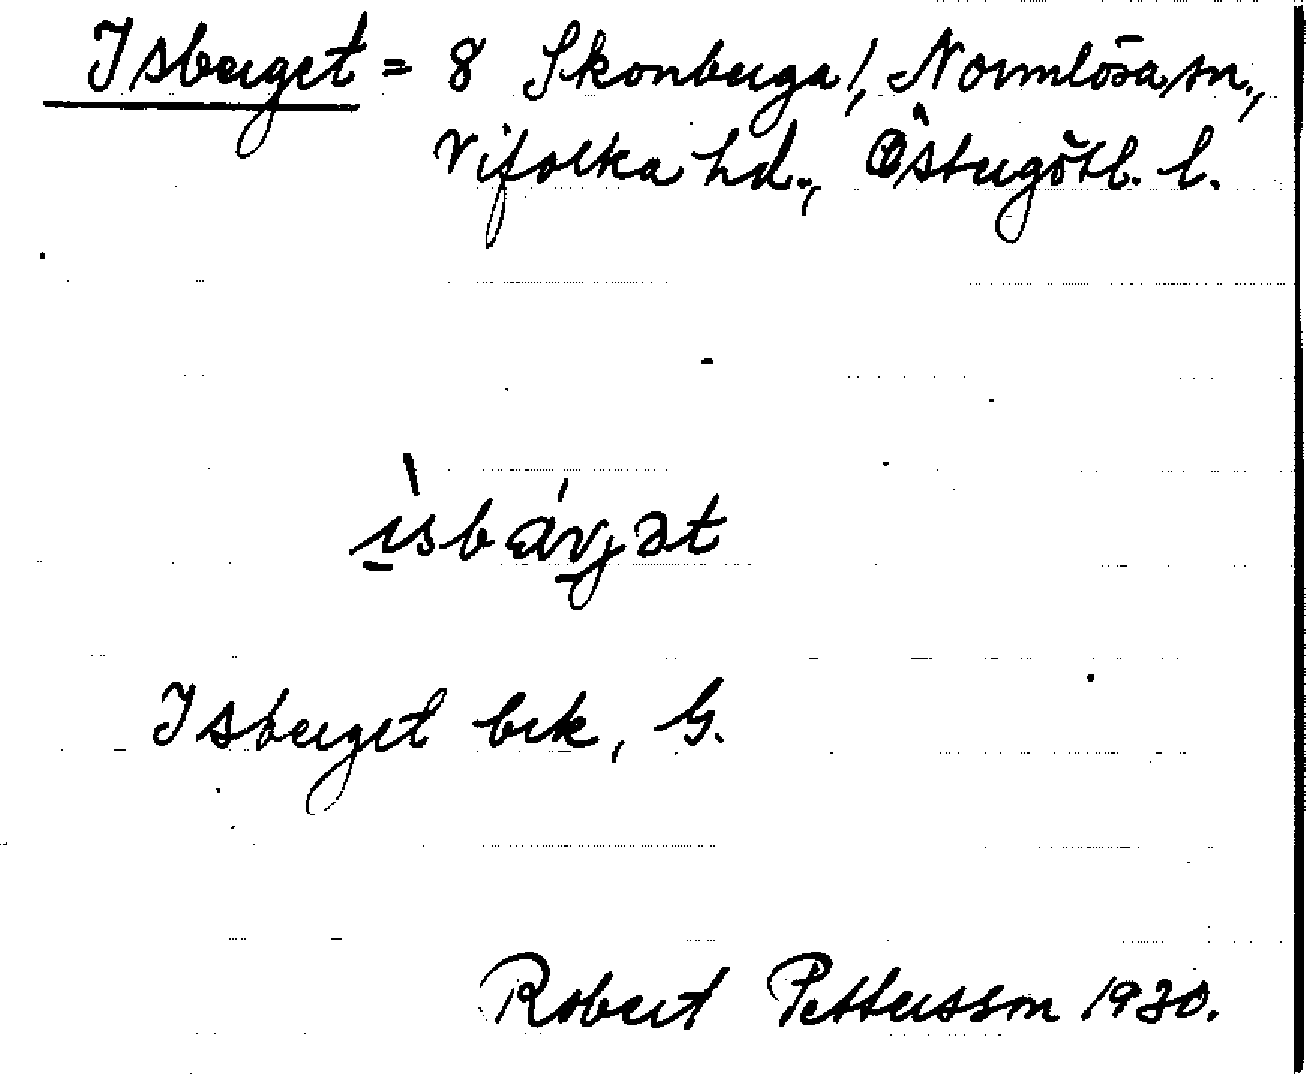 Isberget = 8 Skonberga/, Normlösa sn.,
Vifolka hd., Östergötl. l.
ìsbárjət
Isberget bek, G.
Robert Pettersson 1930.